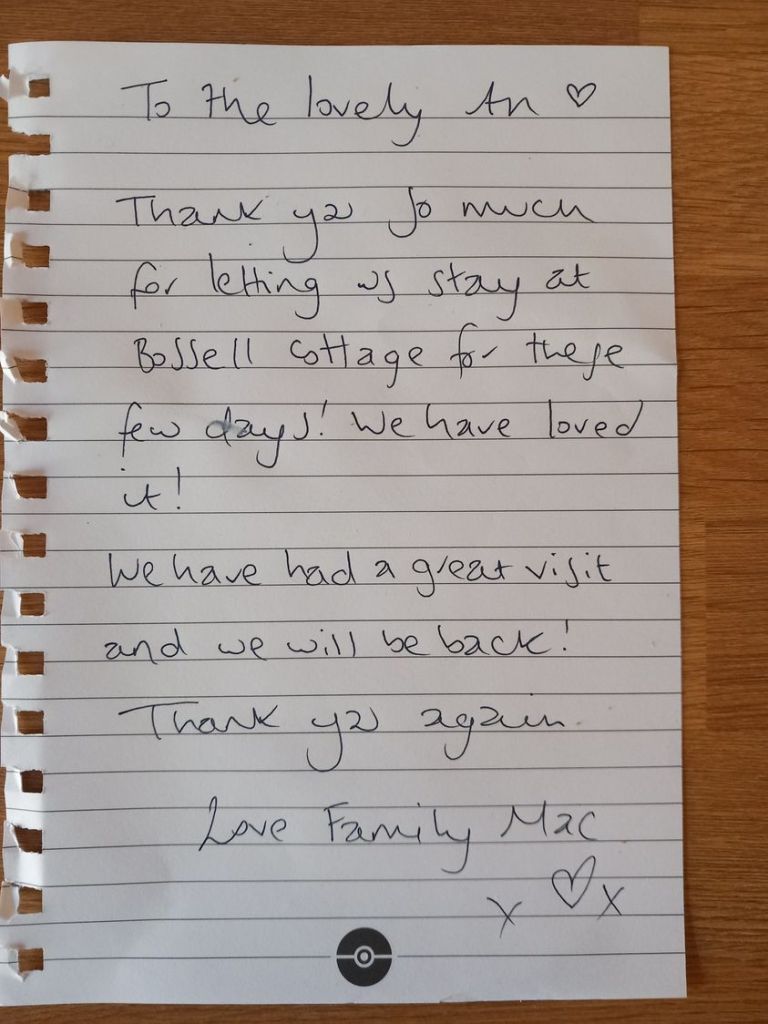 To the lovely An ♡
Thank you so much
for letting us stay at
Bossell Cottage for these
few days! We have loved
it!
We have had a great visit
and we will be back!
Thank you again
Love Family Mac
x ♡ x